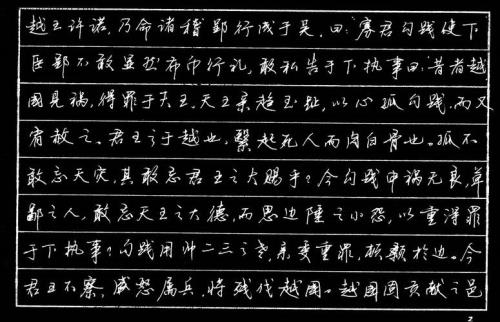 越王许诺，乃命诸稽郢行成于吴，曰：寡君勾践使下
臣郢不敢显然布币行礼，敢私告于下执事曰：昔者越
國見祸，得罪于天王，天王亲趋玉趾，以心孤勾践，而又
宥赦之。君王之于越也，繄起死人而肉白骨也。孤不
敢忘天灾，其敢忘君王之大赐乎？今勾践申祸无良，草
鄙之人，敢忘天王之大德，而思边陲之小怨，以重得罪
于下执事？勾践用帅二三之老，亲委重罪，顿颡於边。今
君王不察，盛怒属兵，将残伐越國。越國固贡献之邑
2